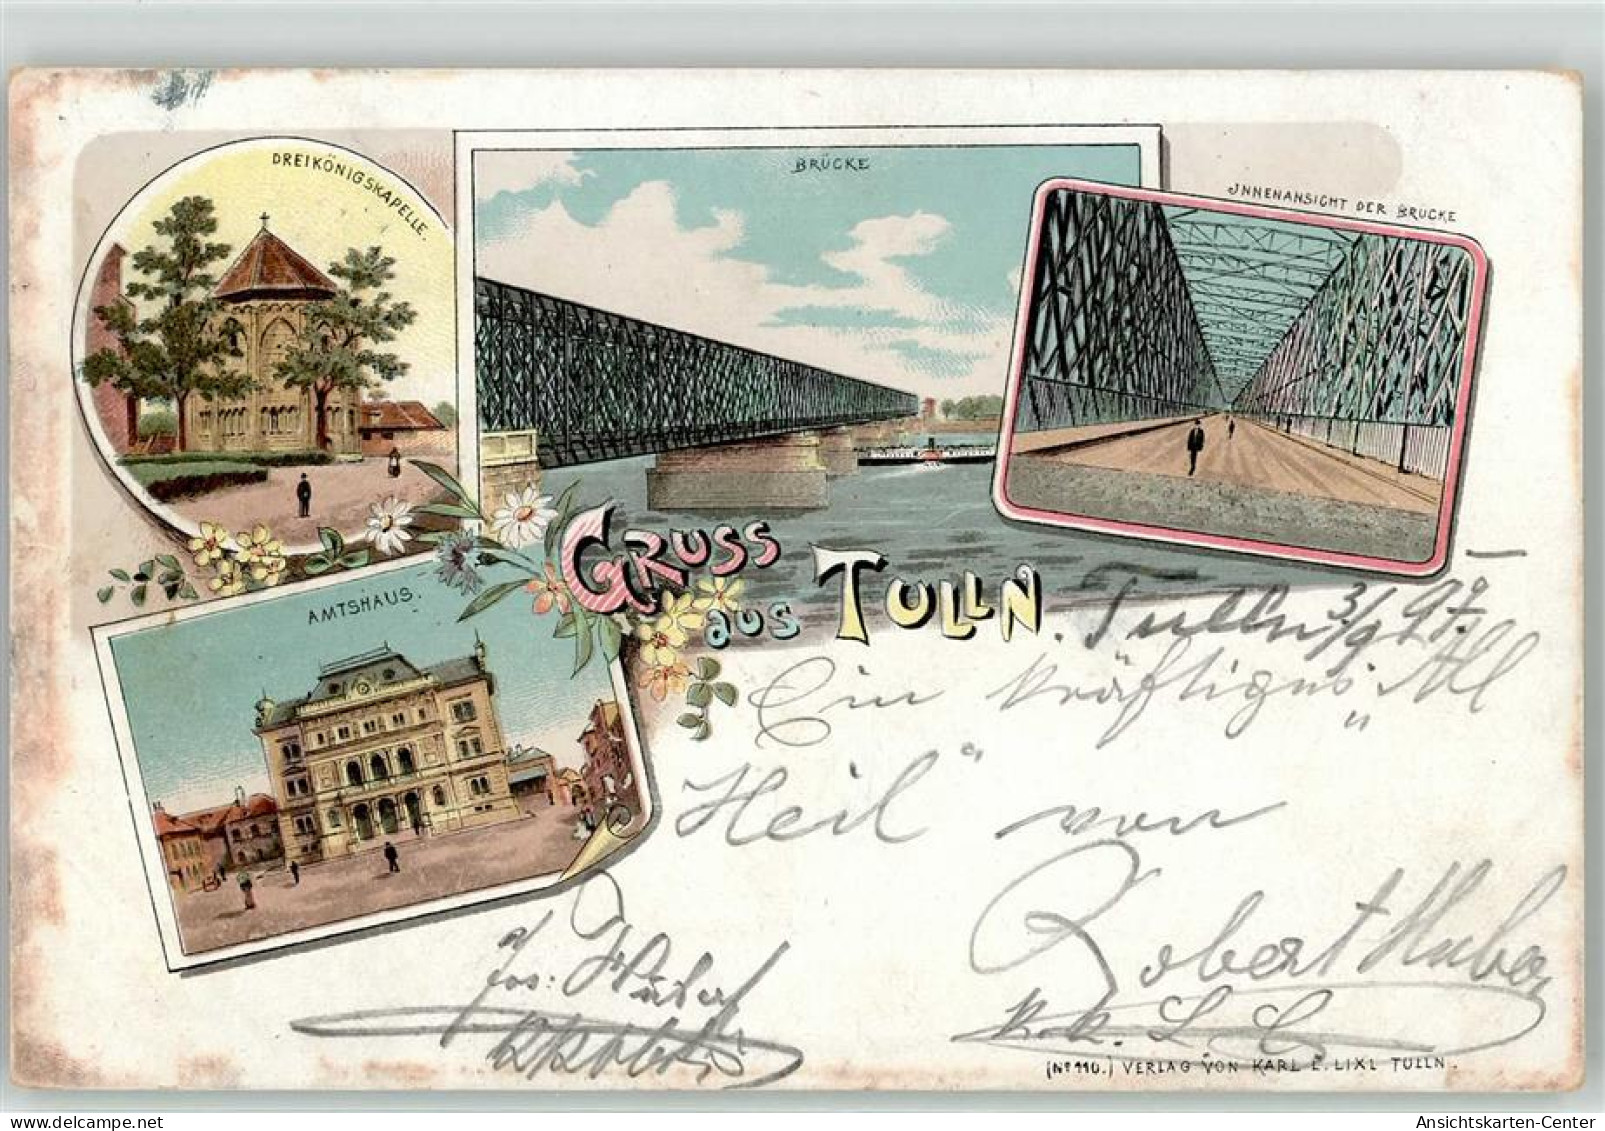 DREIKÖNIGSKAPELLE.
BRÜCKE
INNENANSICHT DER BRÜCKE
AMTSHAUS.
GRUSS
aus TULLN.
Tulln 3/9 97.
Ein kräftiges „All
Heil“ von
Robert Huber
k. k. L. L.
Jos:
(No 110.) VERLAG VON KARL E. LIXL TULLN.
Ansichtskarten-Center